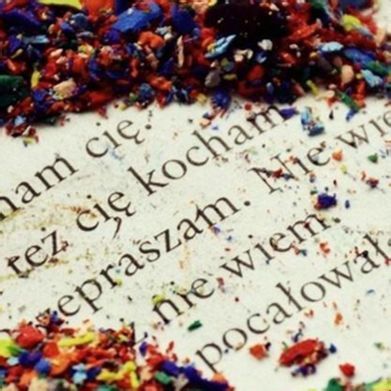 ham cię.
też cię kocham
epraszam. Nie w
nie wiem.
pocałował